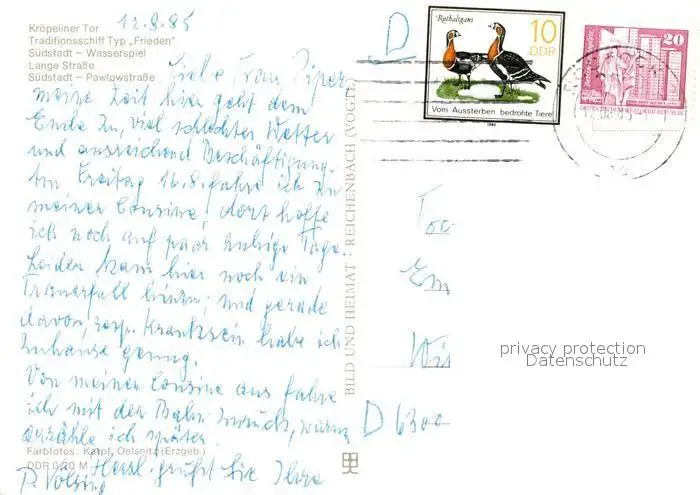 12.8.85
Kröpeliner Tor
Traditionsschiff Typ „Frieden"
Südstadt – Wasserspiel
Lange Straße
Südstadt – Pawlowstraße
Liebe Frau Piper
meine Zeit hier geht dem
Ende zu, viel schlechter Wetter
und ausreichend Beschäftigung.
Am Freitag 16.8. fahre ich zu
meiner Cousine, dort hoffe
ich noch auf paar ruhige Tage.
Leider kam hier noch ein
Trauerfall hinzu; und gerade
davon, resp. Kranksein habe ich
zuhause genug.
Von meiner Cousine aus fahre
ich mit der Bahn zurück, warum
erzähle ich später.
Farbfotos: Kämpf, Oelsnitz (Erzgeb.)
DDR 0,20 M
Herzl. grüßt Sie Ihre
BILD UND HEIMAT · REICHENBACH (VOGTL)
D
Rothalsgans
10
DDR
Vom Aussterben bedrohte Tiere
1985
20
Em
D 6300
privacy protection
Datenschutz